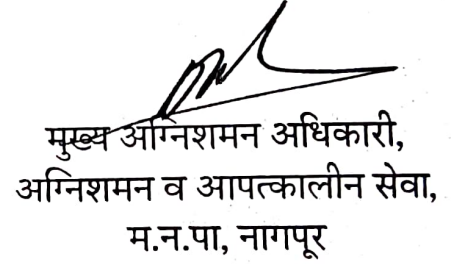 मुख्य अग्निशमन अधिकारी,
अग्निशमन व आपत्कालीन सेवा,
म.न.पा, नागपूर